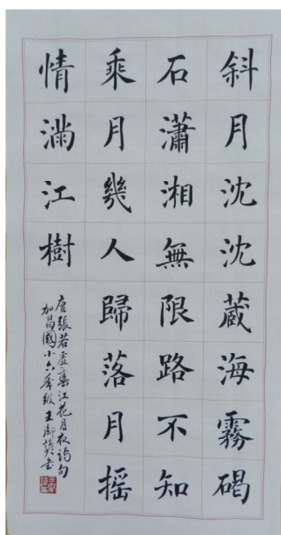 斜月沈沈藏海霧碣
石瀟湘無限路不知
乘月幾人歸落月摇
情滿江樹
唐張若虛春江花月夜詩句
加昌國小六年級王